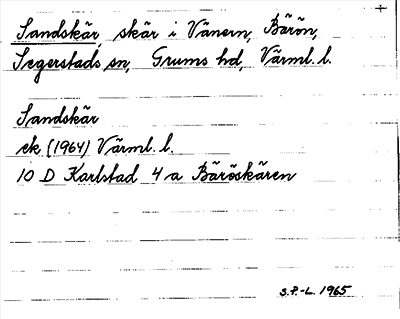 Sandskär, skär i Vänern, Bärön,
Segerstads sn, Grums hd, Värml. l.
Sandskär
ek (1964) Värml. l.
10 D Karlstad 4 a Bäröskären
S.P.-L. 1965